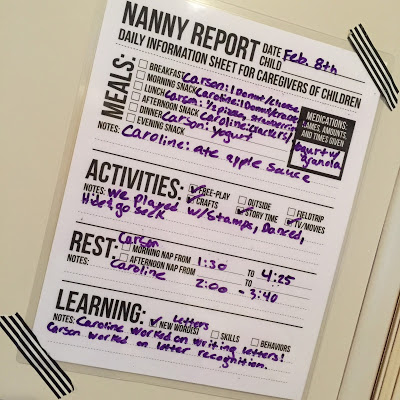 NANNY REPORT DATE Feb. 8th
CHILD
DAILY INFORMATION SHEET FOR CAREGIVERS OF CHILDREN
MEALS:
BREAKFAST Carson: 1 Donut/cheese
MORNING SNACK Caroline: 1 Donut/
LUNCH Carson: 1/2 pizza, strawberries
AFTERNOON SNACK Caroline: crackers/
DINNER Carson: yogurt
EVENING SNACK
MEDICATIONS:
NAMES, AMOUNTS,
AND TIMES GIVEN
yogurt w/
granola
NOTES: Caroline: ate apple sauce
ACTIVITIES: FREE-PLAY OUTSIDE FIELDTRIP
CRAFTS STORY TIME TV/MOVIES
NOTES: We played w/stamps, Danced,
Hide & go seek
REST: Carson
MORNING NAP FROM 1:30 TO 4:25
AFTERNOON NAP FROM TO
NOTES: Caroline 2:00 - 3:40
LEARNING: Letters
NEW WORD(S) SKILLS BEHAVIORS
NOTES: Caroline worked on writing letters!
Carson worked on letter recognition.